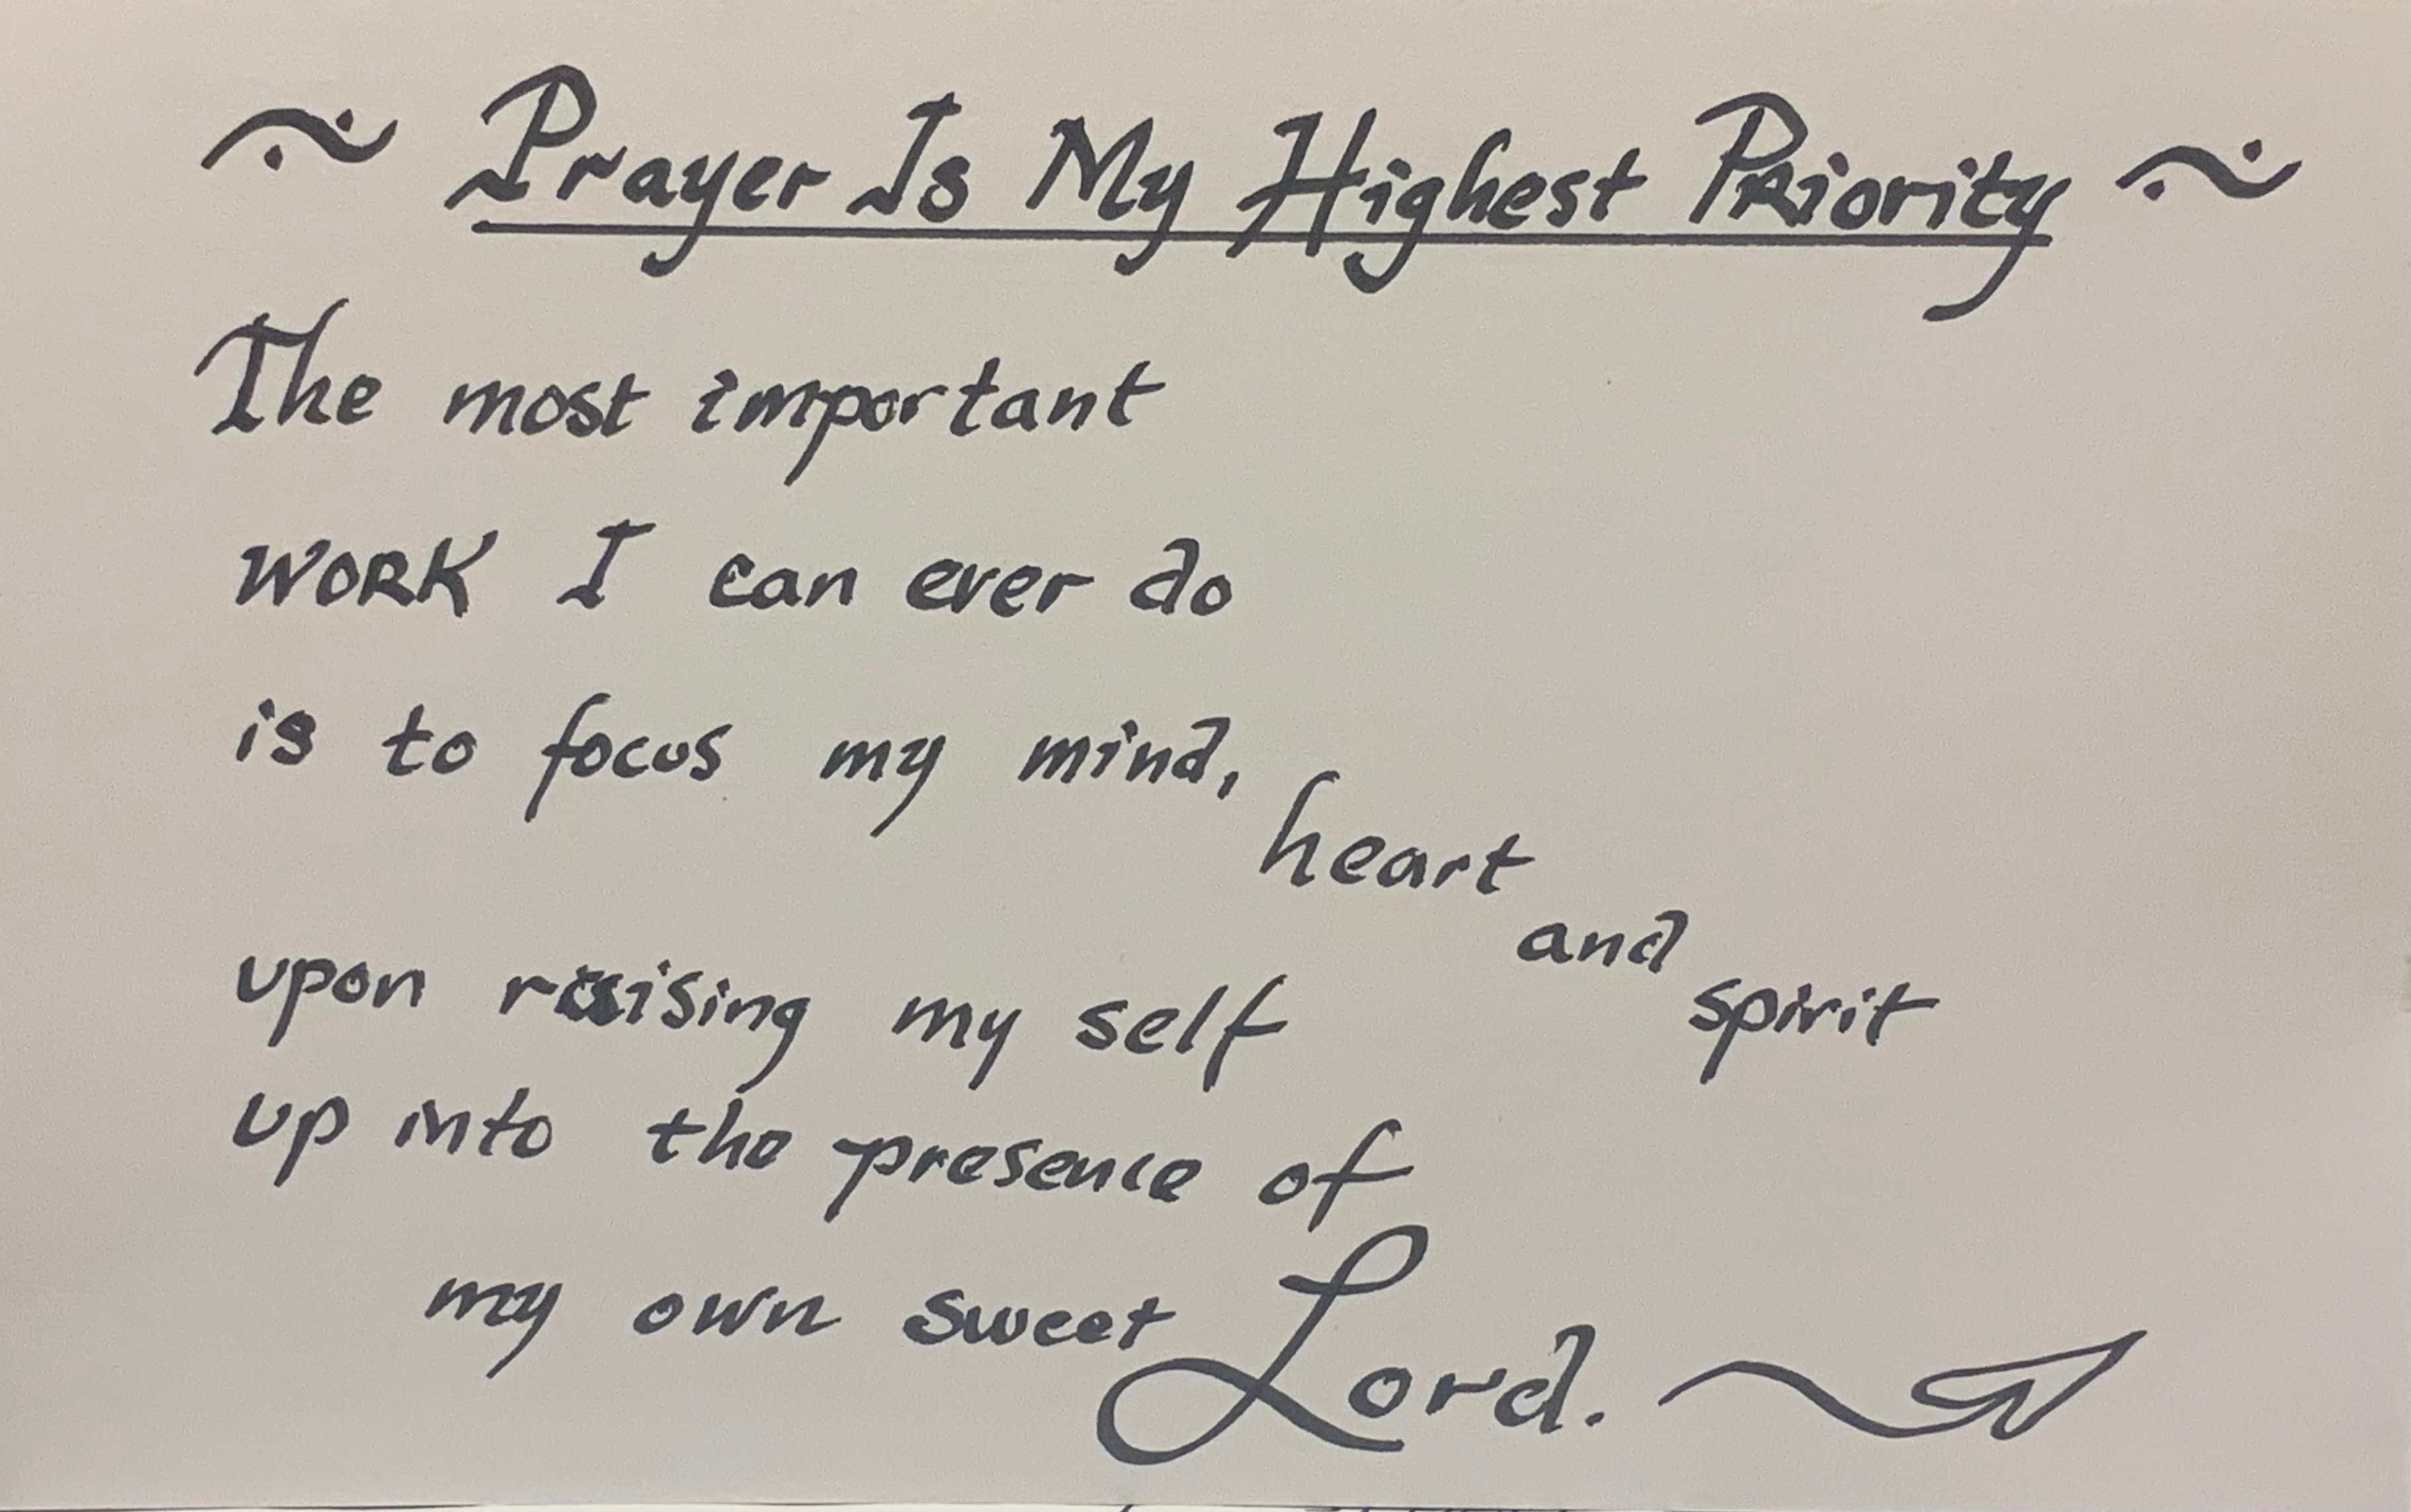 ~ Prayer Is My Highest Priority ~
The most important
WORK I can ever do
is to focus my mind,
heart
and
spirit
upon raising my self
up into the presence of
my own sweet Lord.